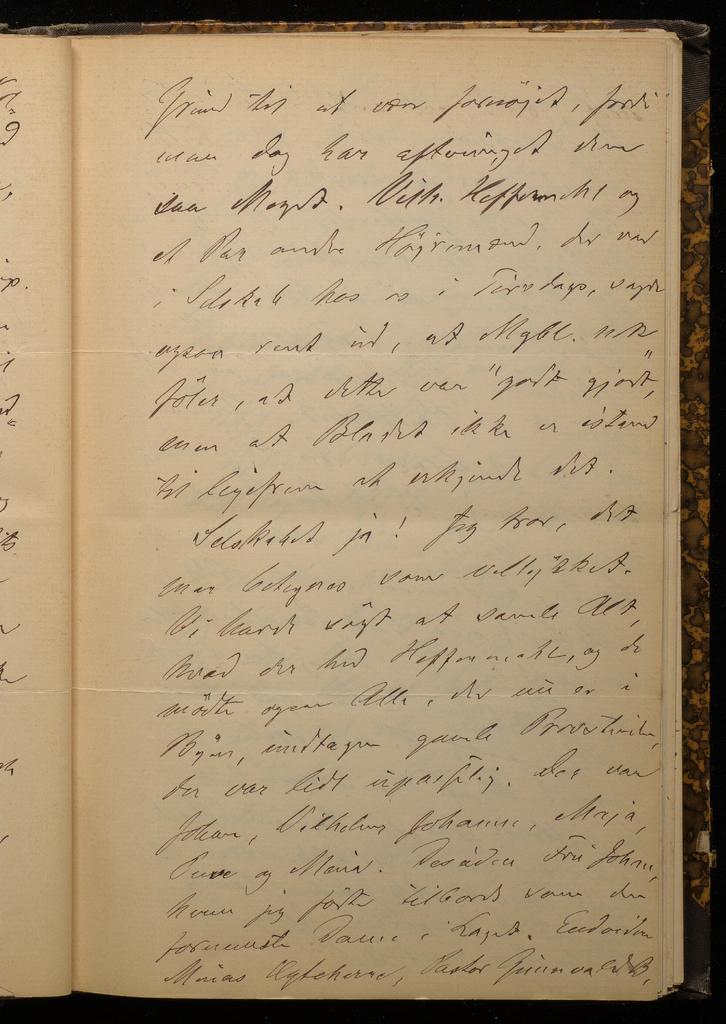 Grund til at være fornøjet, fordi
man dog har aftvunget dem
saa Meget. Vilh. Heffermehl og
et Par andre Højremænd, der var
i Selskab hos os i Tirsdags, sagde
ogsaa rent ud, at Mgbl. nok
føler, at dette var "godt gjort",
men at Bladet ikke er istand
til ligefrem at erkjende det.
Selskabet ja! Jeg tror, det
maa betegnes som vellykket.
Vi havde søgt at samle Alt,
hvad der hed Heffermehl, og de
mødte ogsaa Alle, der nu er i
Byen, undtagen gamle
der var lidt upasselig. Der var
Johan, Vilhelm, Johanne, Maja,
og Maria. Desuden Fru Johan,
hvem jeg førte tilbords som den
fornemste Dame i Laget. Endvidere
Minas, Pastor